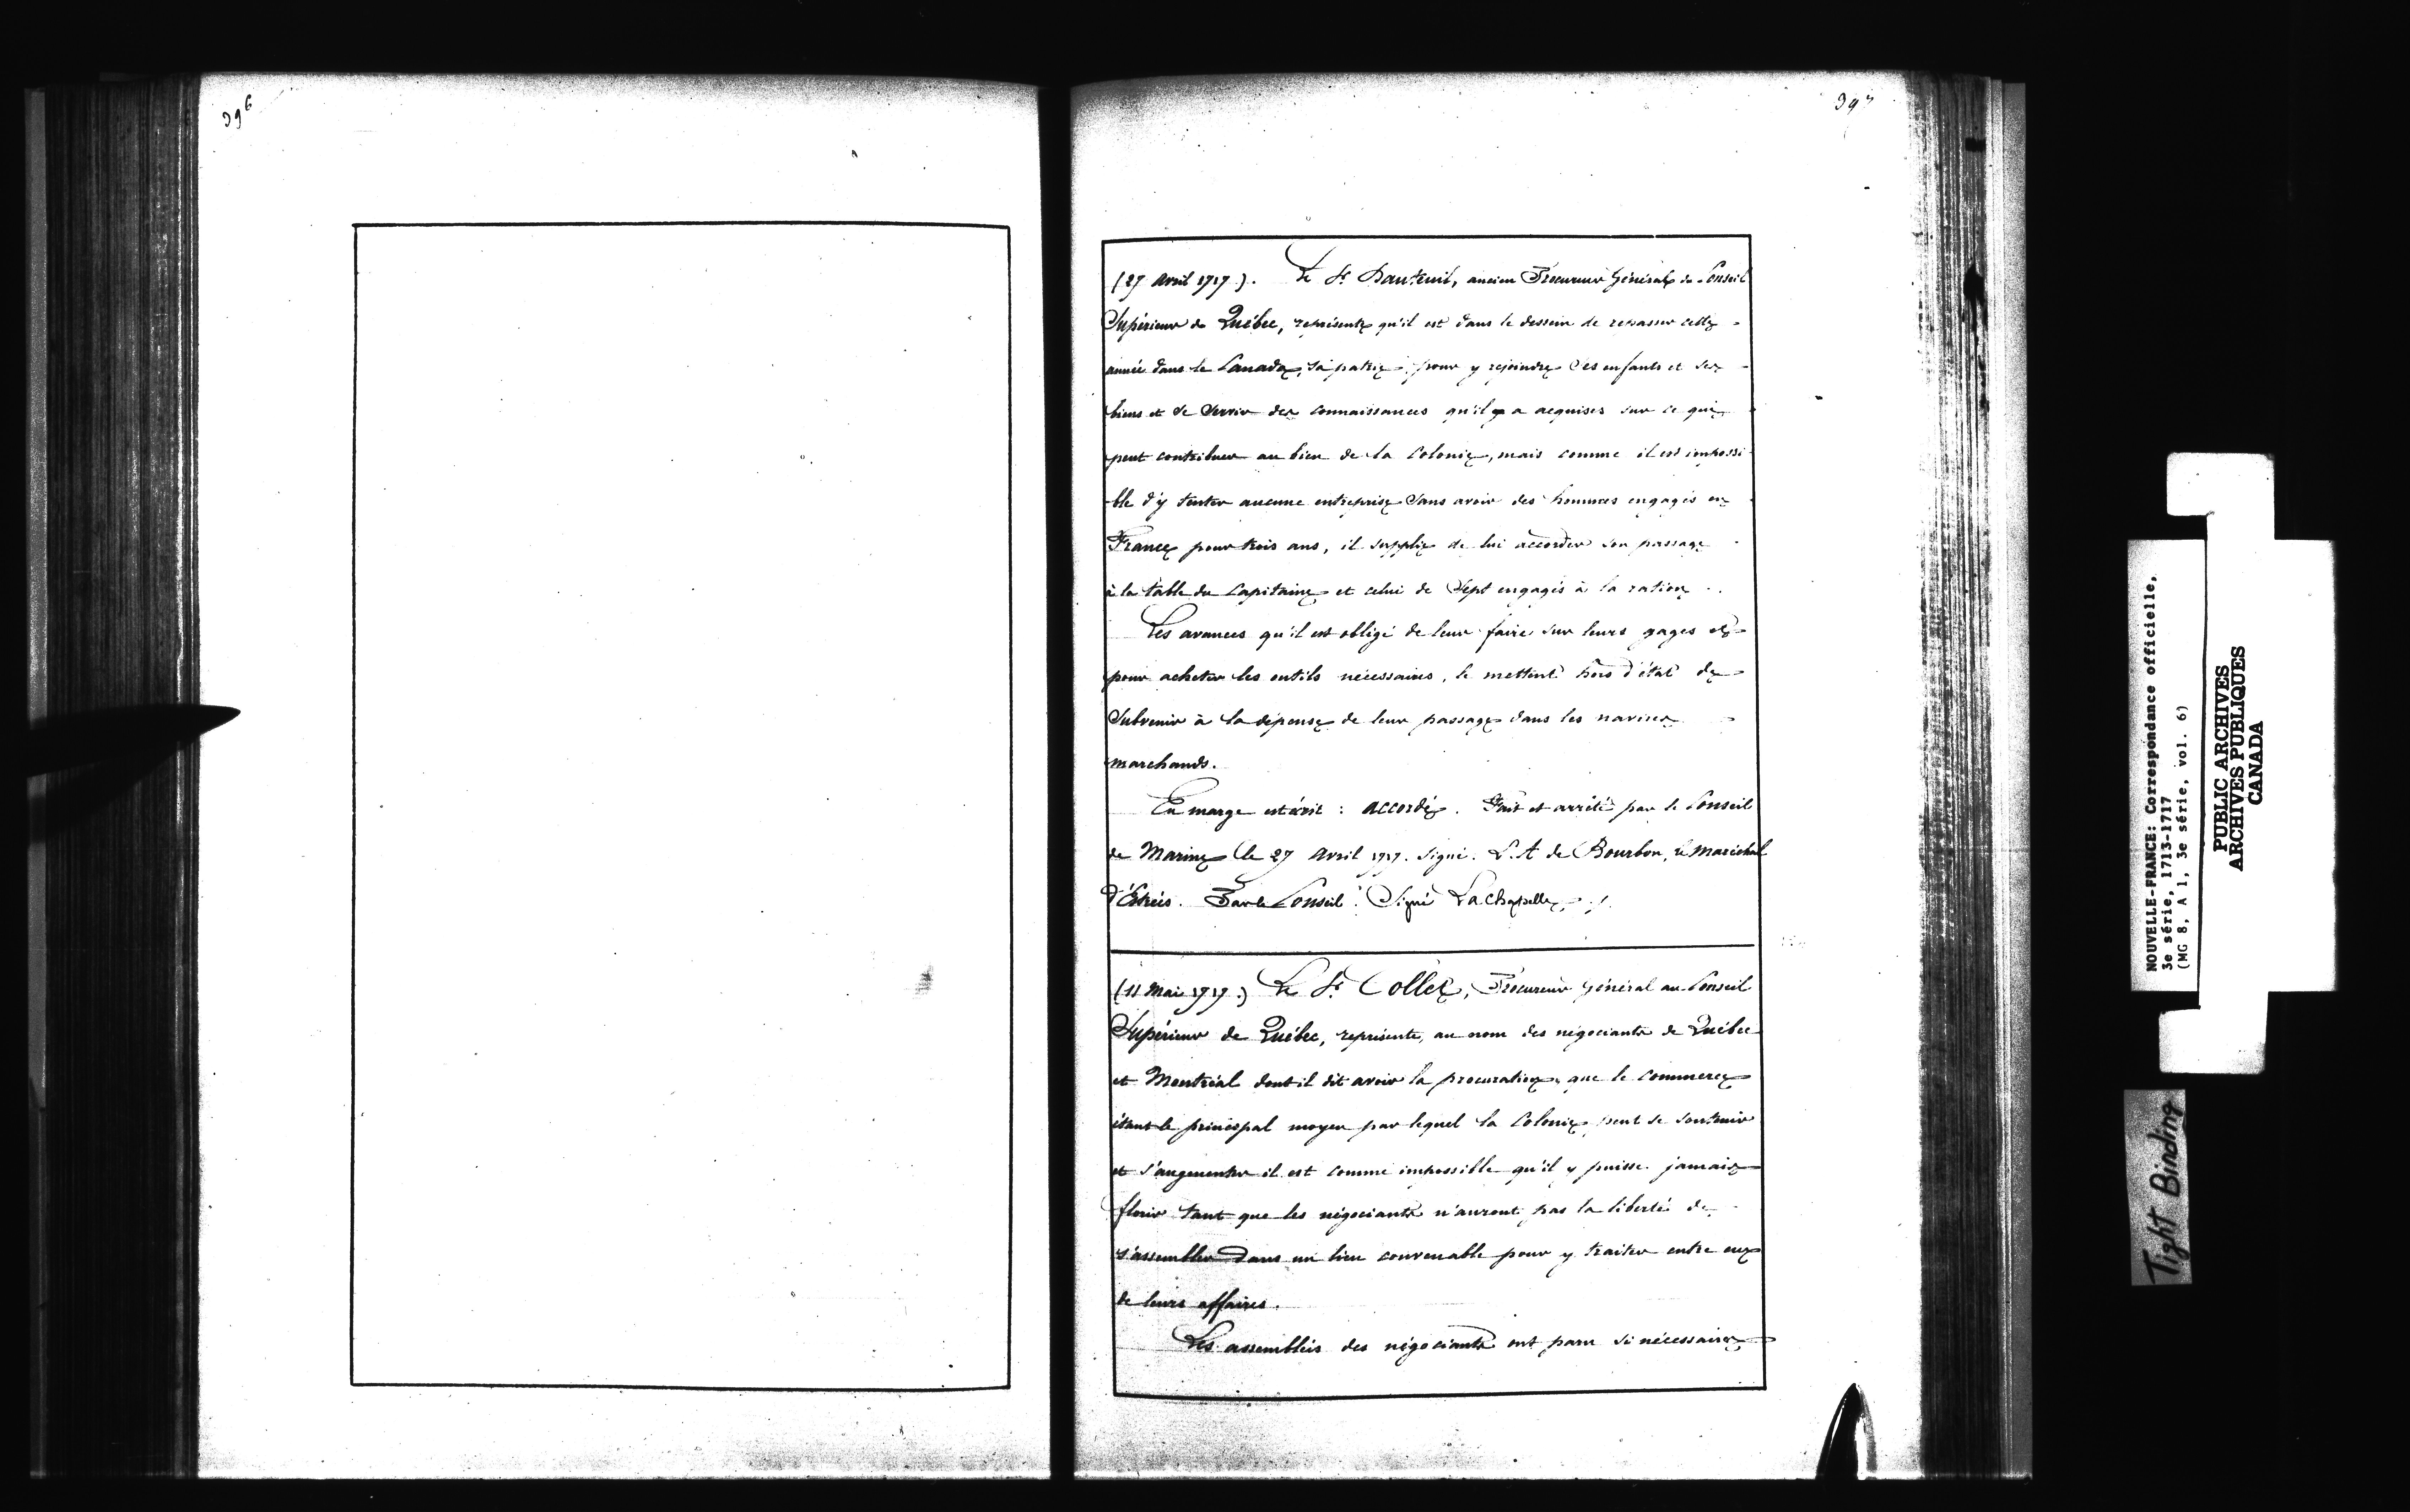 396
397
(27 avril 1717). Le Sr. Dauteuil, ancien Procureur Général du Conseil
Supérieur de Québec, représente qu'il est dans le dessein de repasser cette
année dans le Canada, sa patrie, pour y rejoindre ses enfants et ses
biens et se servir des connaissances qu'il y a acquises sur ce qui
peut contribuer au bien de la Colonie, mais comme il est impossi
-ble d'y tenter aucune entreprise sans avoir des hommes engagés en
France pour trois ans, il supplie de lui accorder son passage
à la table du Capitaine et celui de Sept engagés à la ration.
Les avances qu'il est obligé de leur faire sur leurs gages et
pour acheter les outils nécessaires, le mettent hors d'état de
Subvenir à la dépense de leur passage dans les navires
marchands.
En marge est écrit : accordé. Fait et arrêté par le Conseil
de Marine le 27 avril 1717. Signé. L. A de Bourbon, le Maréchal
d'Estrées. Par le Conseil. Signé LaChapelle ./.
(11 Mai 1717.) Le Sr. Collet, Procureur Général au Conseil
Supérieur de Québec, représente, au nom des négociants de Québec
et Montréal dont il dit avoir la procuration, que le commerce
étant le principal moyen par lequel la Colonie peut se soutenir
et s'augmenter il est comme impossible qu'il y puisse jamais
fleurir tant que les négociants n'auront pas la liberté de
s'assembler dans un lieu convenable pour y traiter entre eux
de leurs affaires.
Les assemblées des négociants ont paru si nécessaires
NOUVELLE-FRANCE: Correspondance officielle,
3e série, 1713-1717
(MG 8, A 1, 3e série, vol. 6)
PUBLIC ARCHIVES
ARCHIVES PUBLIQUES
CANADA
Tight Binding